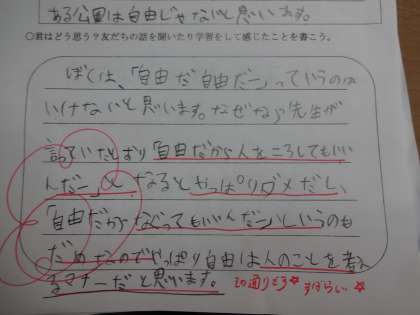 ある公園は自由じゃないと思います。
○君はどう思う？友だちの話を聞いたり学習をして感じたことを書こう。
ぼくは、「自由だ自由だー」っていうのは
いけないと思います。なぜなら先生が
言っていたとおり自由だから人をころしてもいい
んだー」と なるとやっぱりダメだし、
「自由だからなぐってもいいんだー」というのも
だめなのでやっぱり自由は人のことを考え
るマナーだと思います。
その通りです☆ すばらしい☆